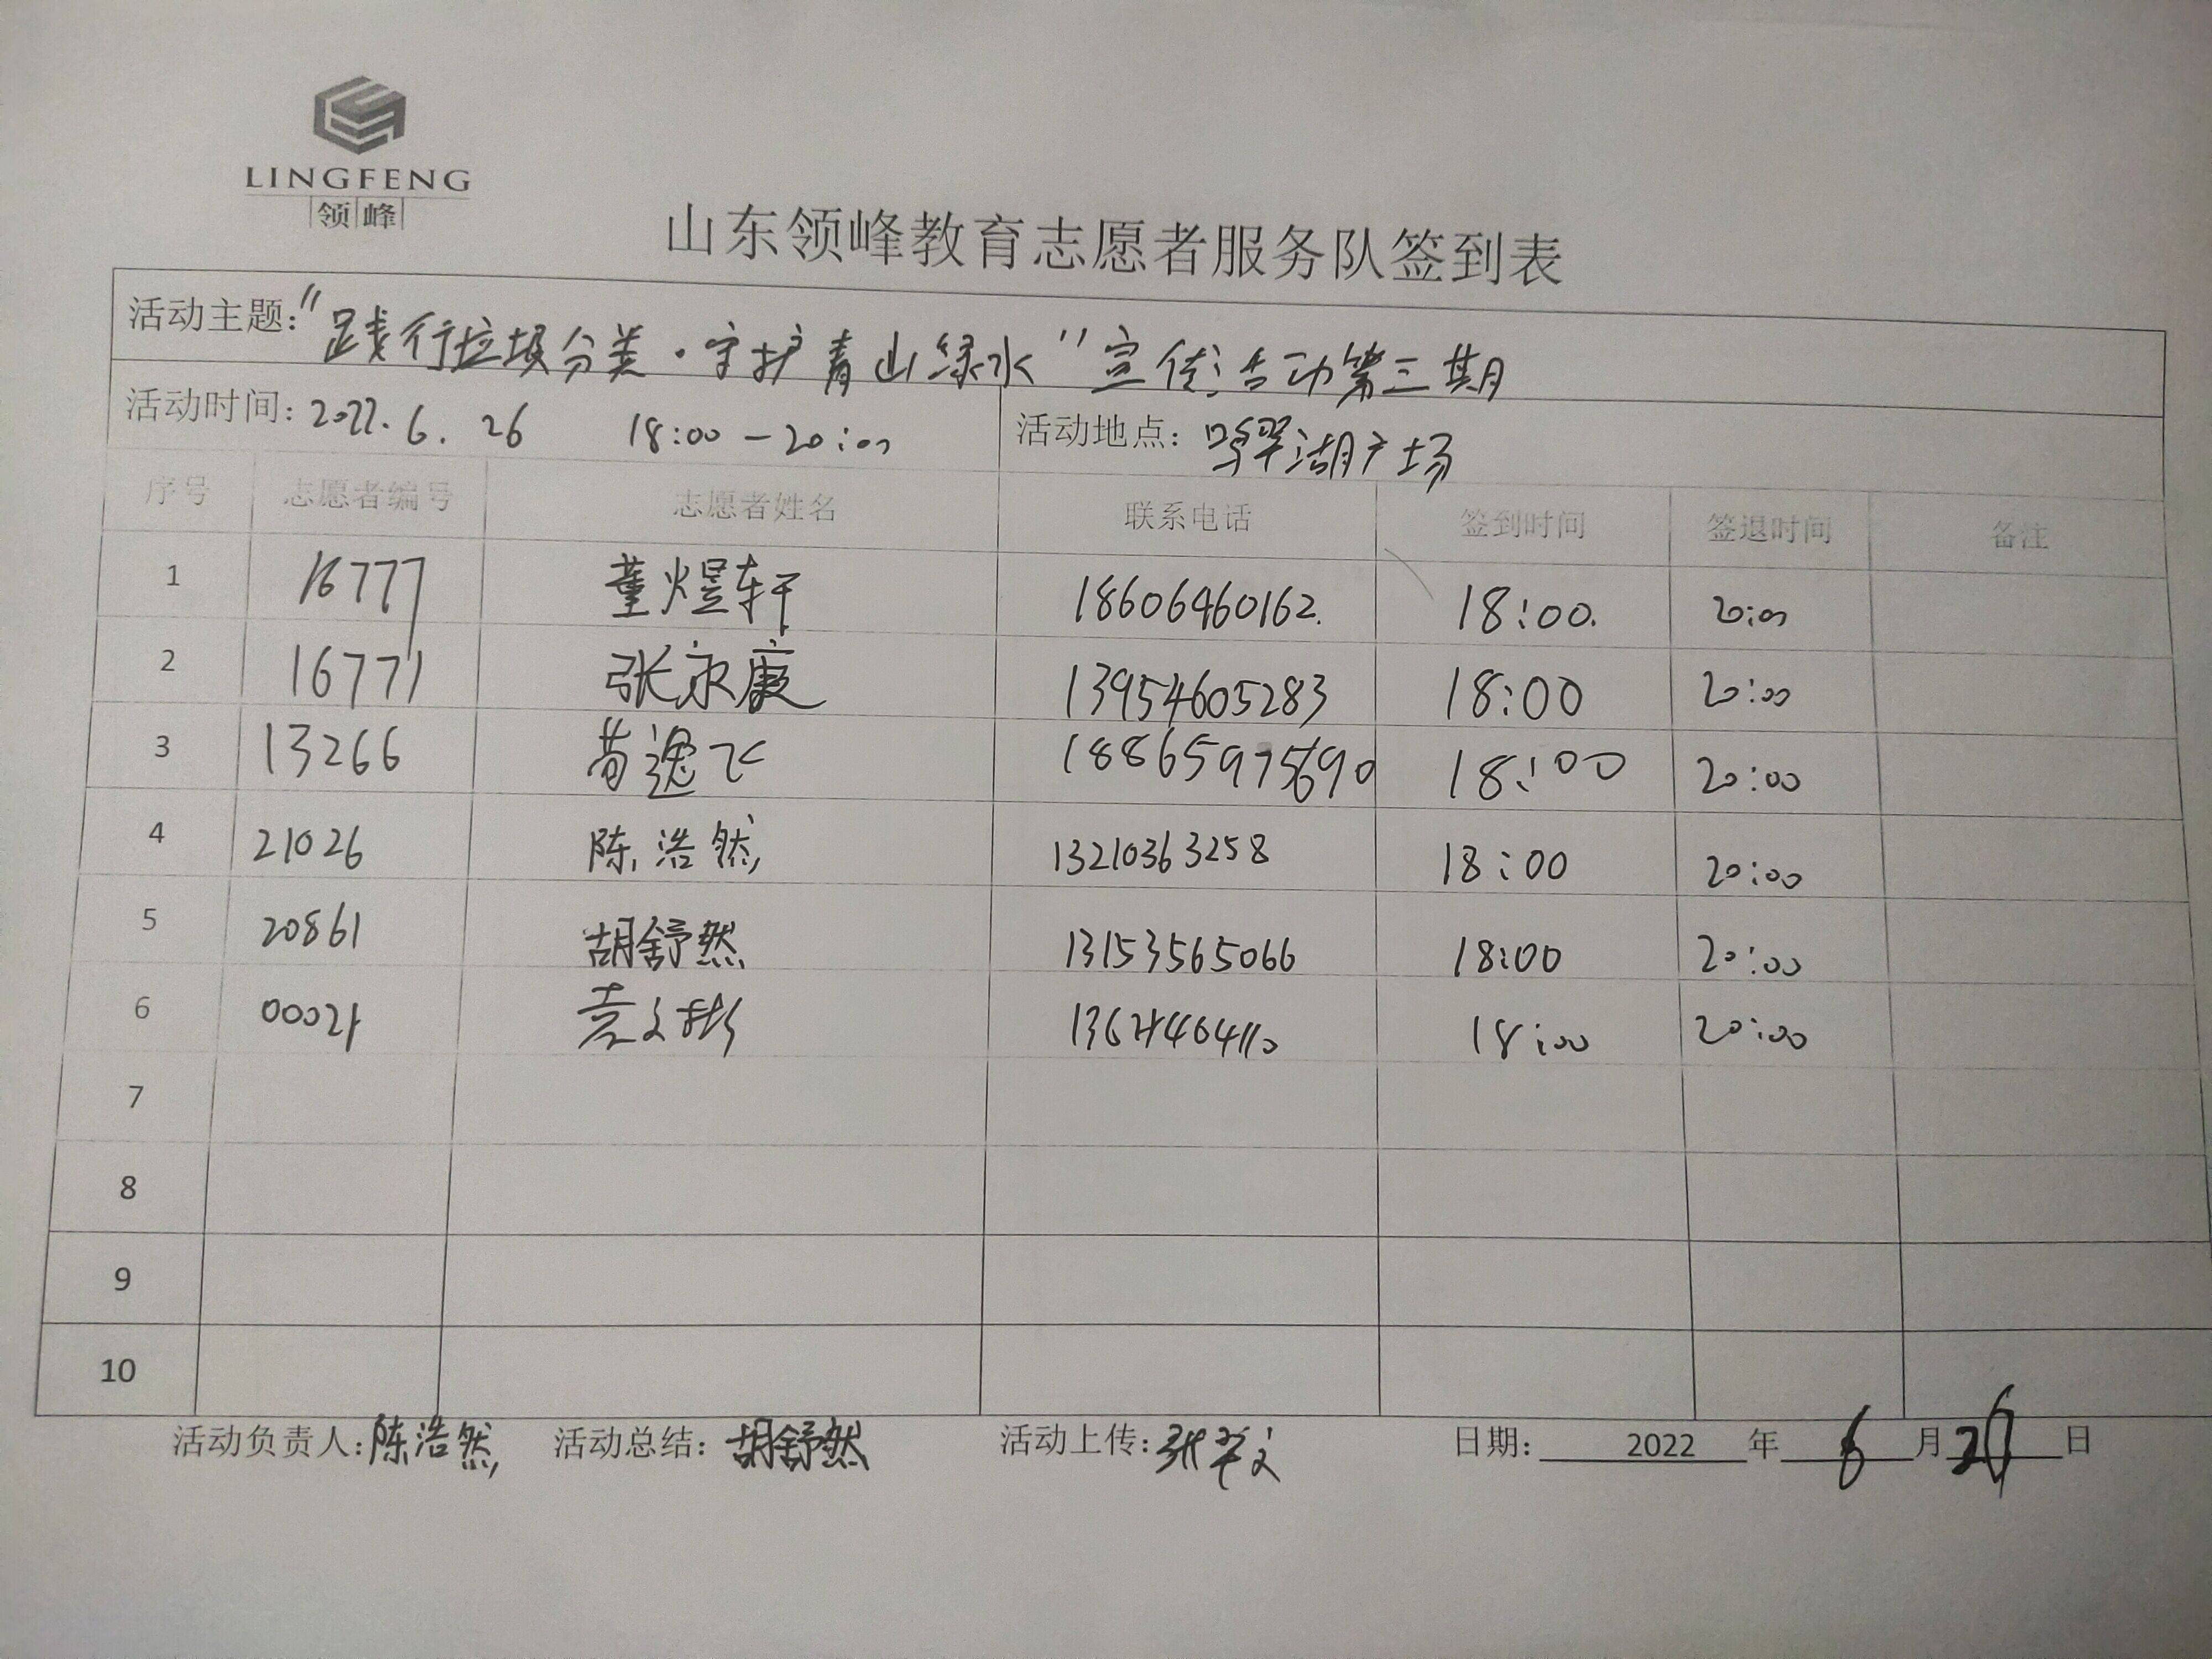 LINGFENG
领峰
山东领峰教育志愿者服务队签到表
活动主题：“践行垃圾分类·守护青山绿水”宣传活动第三期
活动时间：2022.6.26 18:00-20:00 活动地点：鸣翠湖广场
序号 志愿者编号 志愿者姓名 联系电话 签到时间 签退时间 备注
1 16777 董煜轩 18606460162. 18:00. 20:00
2 16771 张永康 13954605283 18:00 20:00
3 13266 苟逸飞 18865975690 18:00 20:00
4 21026 陈浩然 13210363258 18:00 20:00
5 20861 胡舒然 13153565066 18:00 20:00
6 00021 袁文彬 18:00 20:00
7
8
9
10
活动负责人：陈浩然 活动总结：胡舒然 活动上传： 日期： 2022 年 6 月 26 日